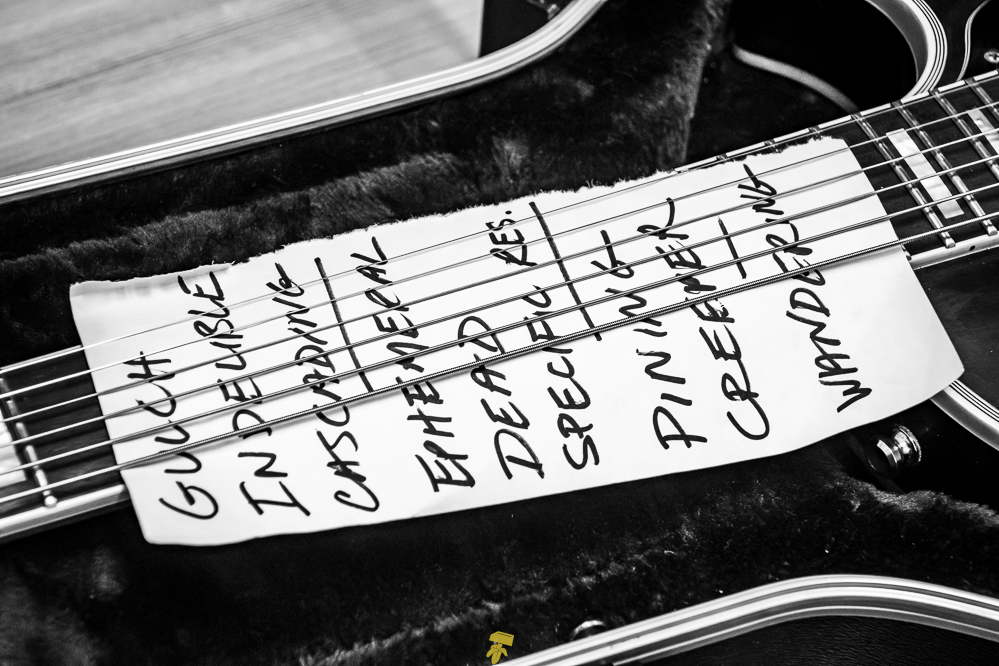 GULCH
INDELIBLE
CASCADING
EPHEMERAL
DEAD RES.
SPECIFIC
PINING
CREEPER
WANDERING